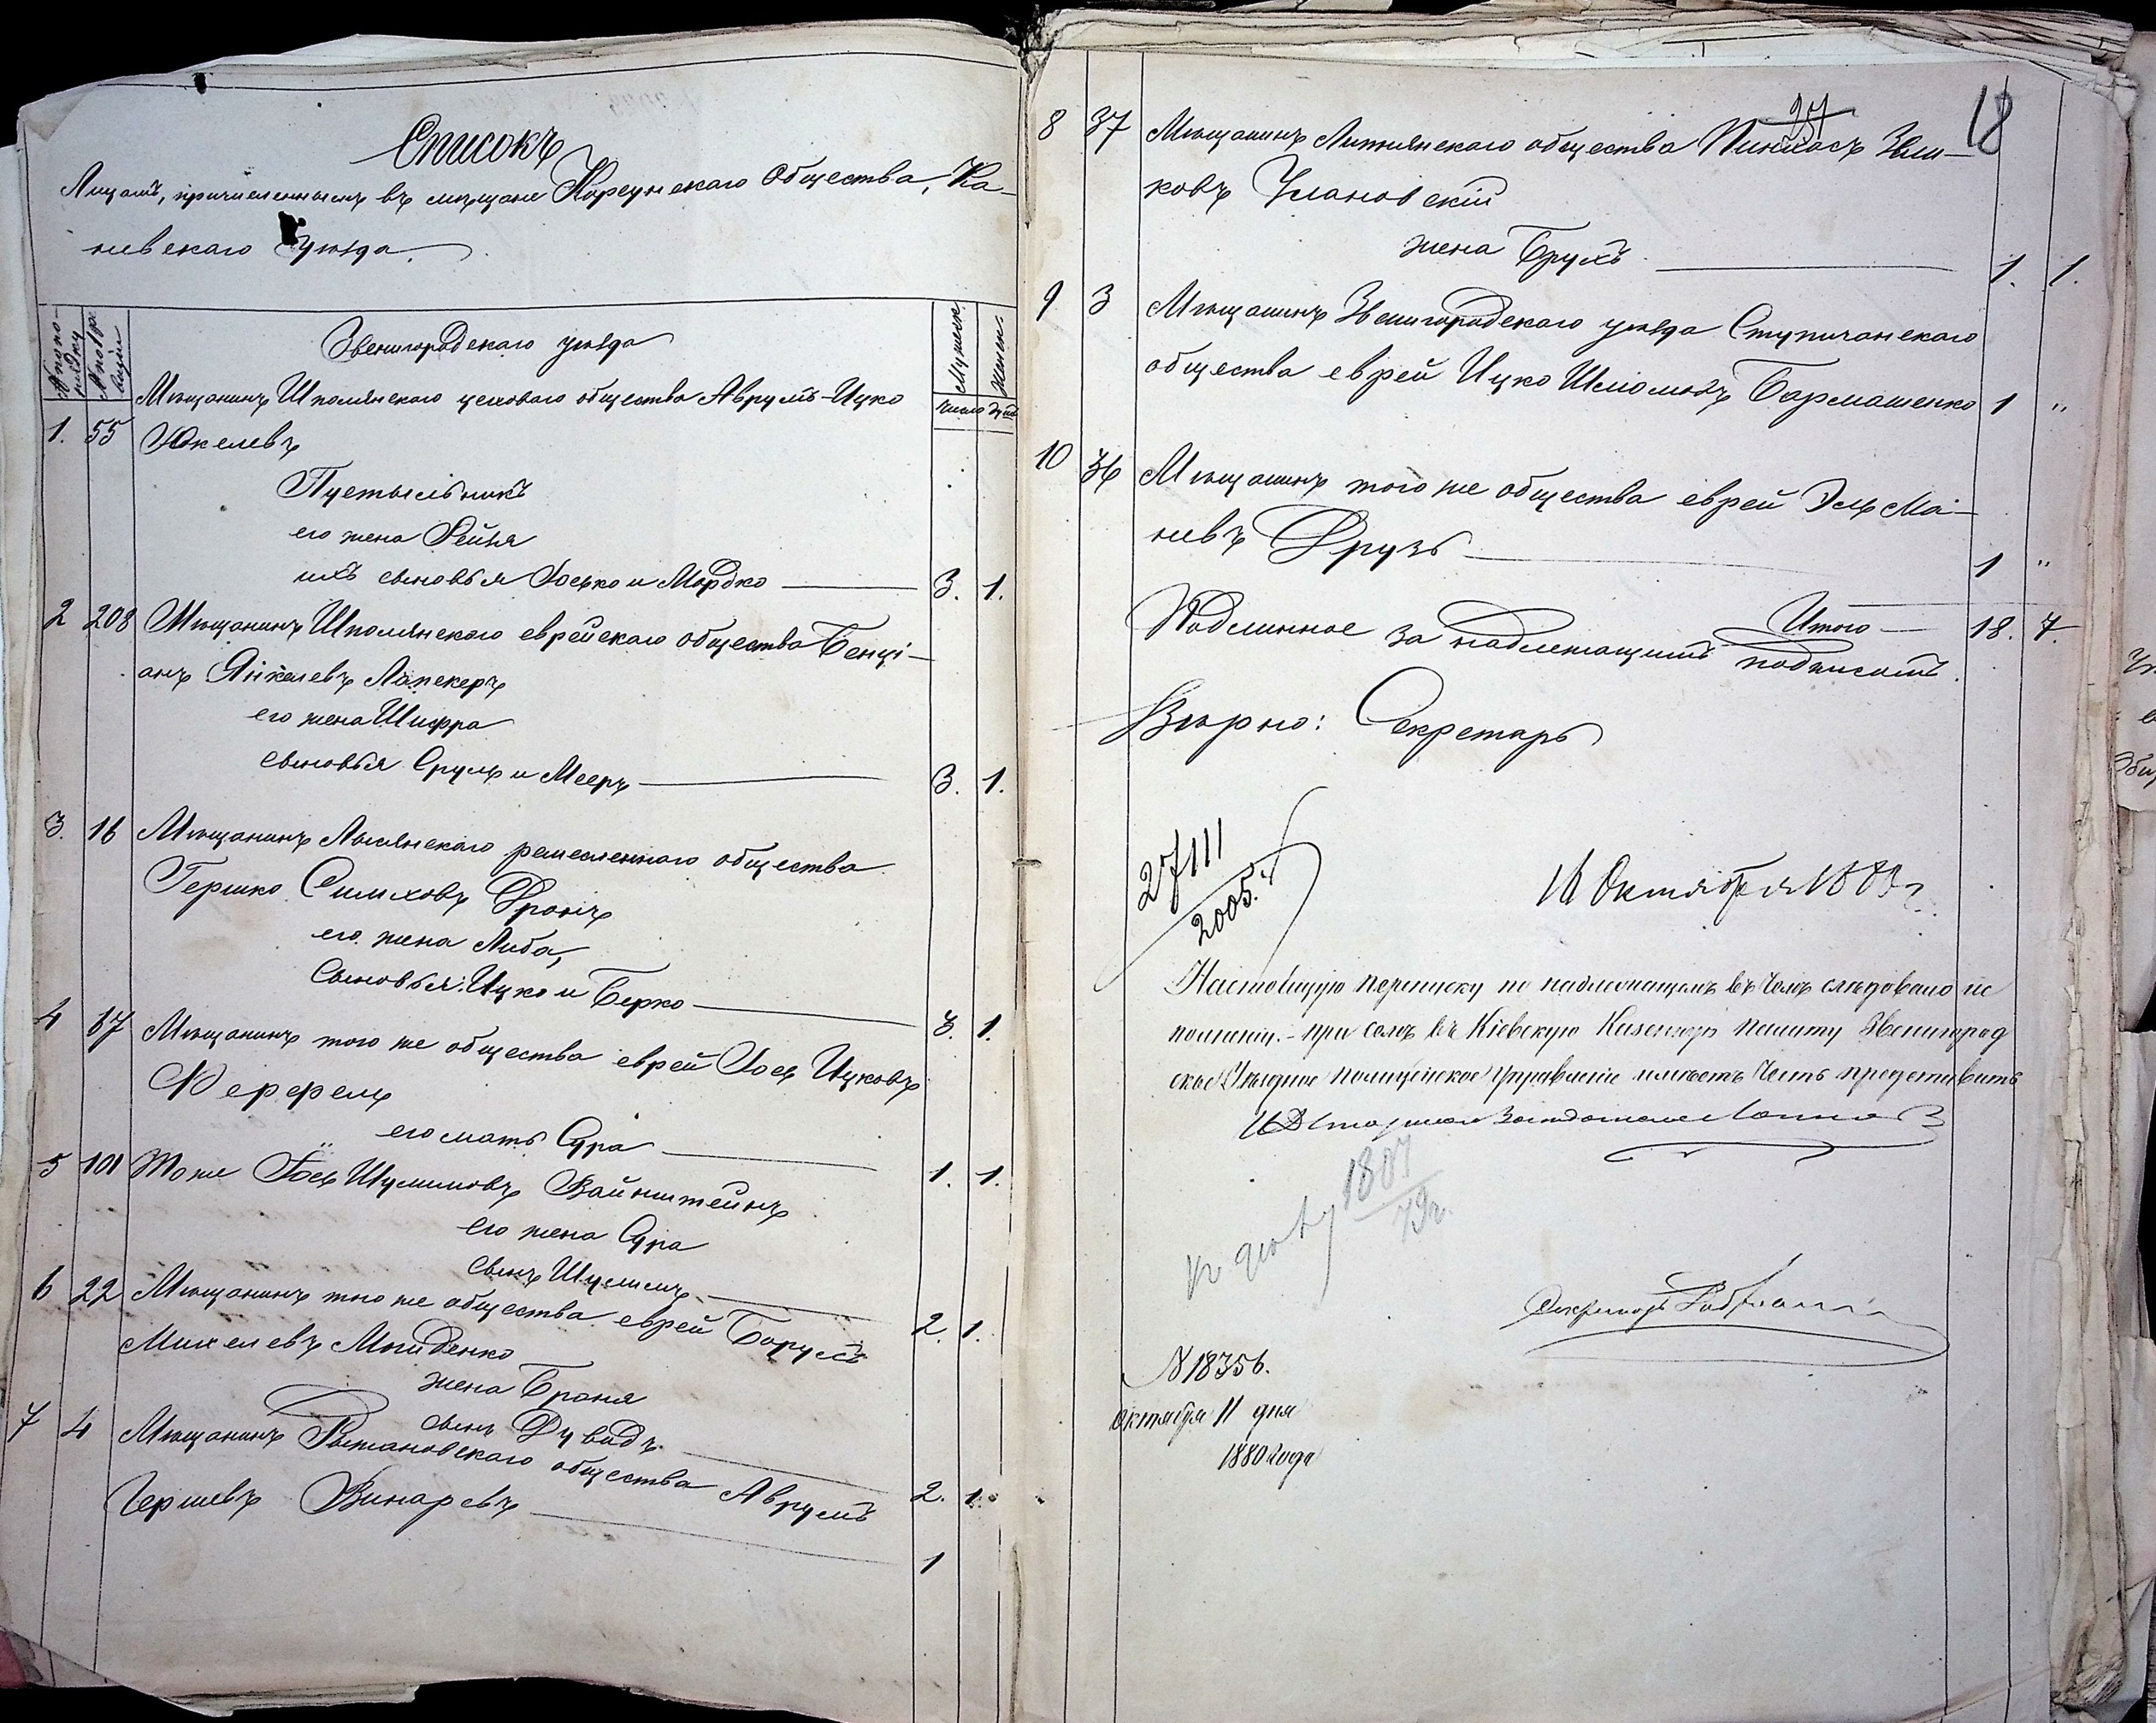 Списокъ
Лицамъ, причисленнымъ въ мещане Корсунскаго Общества, Ка-
невскаго уѣзда.
№ по по-
рядку
№ по ре
визіи
Звенигородскаго уѣзда
Мужеск.
Женск.
Число душъ
1. 55 Мѣщанинъ Шполянскаго цеховаго общества Аврумъ-Ицко
Юкелевъ
Пустыльникъ
его жена Фейга
ихъ сыновья Йосько и Мордко 3. 1.
2 208 Мѣщанинъ Шполянскаго еврейскаго общества Бенці-
анъ Янкелевъ Лапекеръ
его жена Шифра
сыновья Сруль и Мееръ 3. 1.
3. 16 Мѣщанинъ Лысянскаго ремесленнаго общества
Гершко Симховъ
его жена Либа,
Сыновья: Ицко и Берко 3. 1.
4 87 Мѣщанинъ того же общества еврей Йось Ицковъ
Ферфель
его мать Сура 1. 1.
5 101 Тоже Йось Шулимовъ Вайнштейнъ
его жена Сура
сынъ Шулимъ 2. 1.
6 22 Мѣщанинъ того же общества еврей Борухъ
Михелевъ
жена Броня
сынъ Дувидъ 2. 1.
7 4 Мѣщанинъ Рыжановскаго общества Аврумъ
Гершевъ Винаревъ 1
27
18
8 37 Мѣщанинъ общества Пинхасъ Зели-
ковъ Улановскій
жена Брухъ 1. 1.
9 3 Мѣщанинъ Звенигородскаго уѣзда Ступичанскаго
общества еврей Ицко Шліомовъ Бармашенко 1 "
10 36 Мѣщанинъ того же общества еврей Эль Ма-
невъ Друзь 1 "
Итого 18. 7.
Подлинное за надлежащимъ подписомъ.
Вѣрно: Секретарь
27111
2005.
16 Октября 1880 г.
Настоящую переписку по надлежащемъ въ чемъ слѣдовало ис
полненіи.- при семъ въ Кіевскую Казенную Палату Звенигород
ское Уѣздное полицейское управленіе имѣетъ честь представить
Заседатель
къ дѣлу 1807
79г.
Секретарь
№ 18356.
Октября 11 дня
1880 года